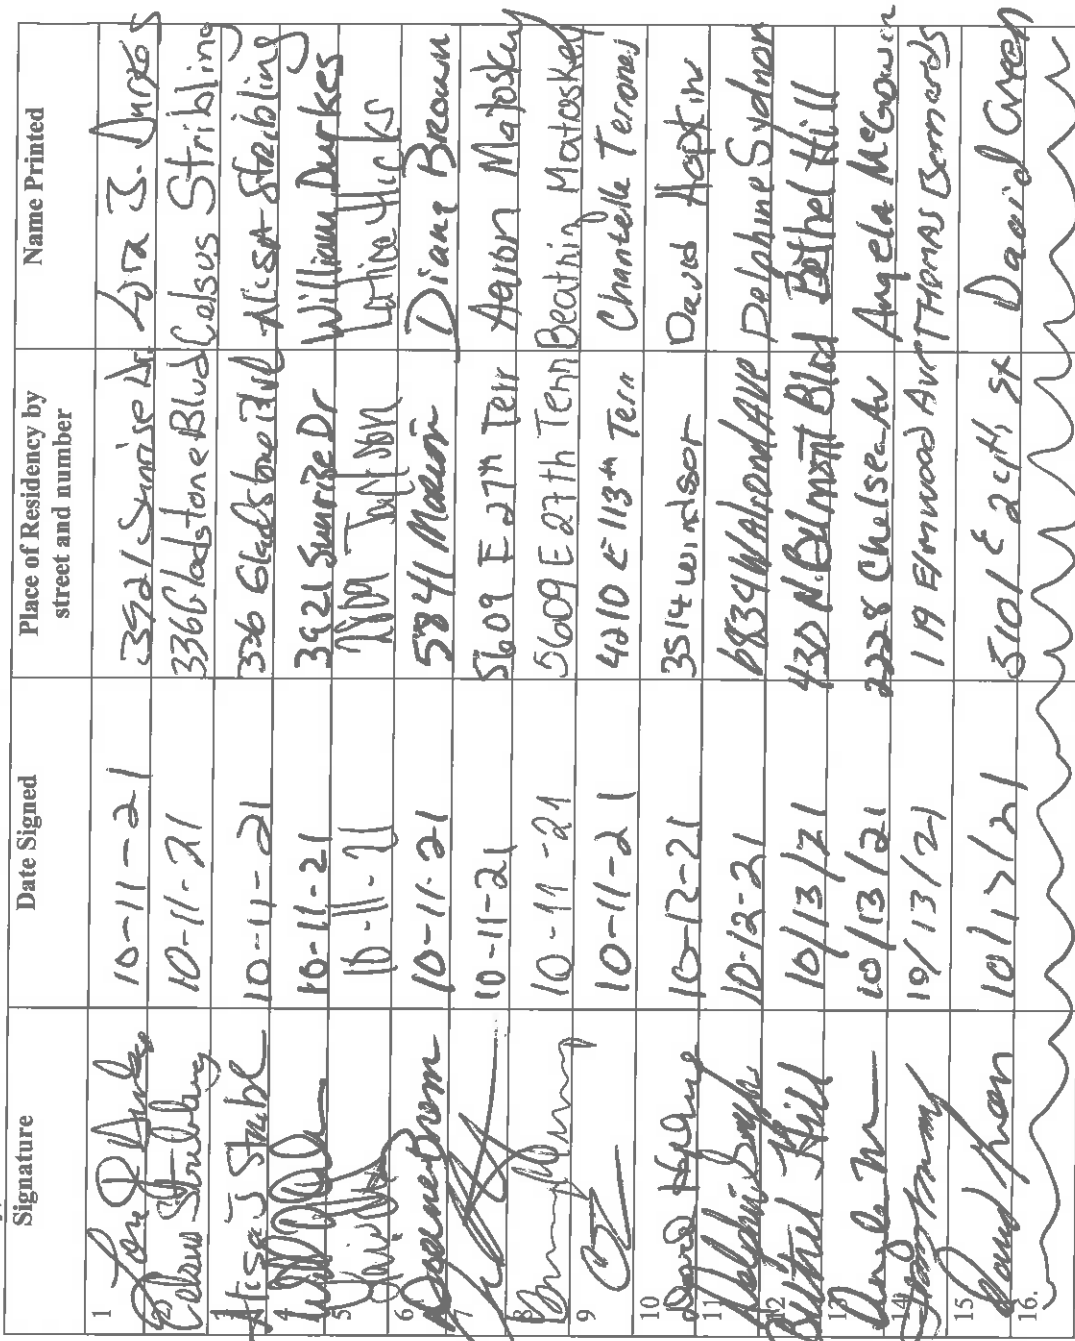 Signature Date Signed Place of Residency by street and number Name Printed
1 10-11-21 3921 Sunrise Dr Lora B. Durkes
2 10-11-21 336 Gladstone Blvd Calsus Stribling
3 Alisa J Stribl 10-11-21 336 Gladstone Blvd Alisa Stribling
4 10-11-21 3921 Sunrize Dr William Durkes
5 10-11-21 Jackson Latice Hicks
6 10-11-21 5841 Marion Diane Brown
7 10-11-21 5609 E 27th Terr Aaron Matoskey
8 10-11-21 5609 E 27th Terr Beatriz Matoskey
9 10-11-21 4210 E 113th Terr Chantelle Terrones
10 David 10-12-21 3514 Windsor David
11 10-12-21 6834 Walrond AVE Delphine Sydnor
12 Bethel Hill 10/13/21 430 N. Belmont Blvd Bethel Hill
13 10/13/21 2228 Chelsea Av Angela McGowen
14 10/13/21 119 Elmwood Ave THOMAS
15 David Green 10/13/21 5101 E 24th St David Green
16.